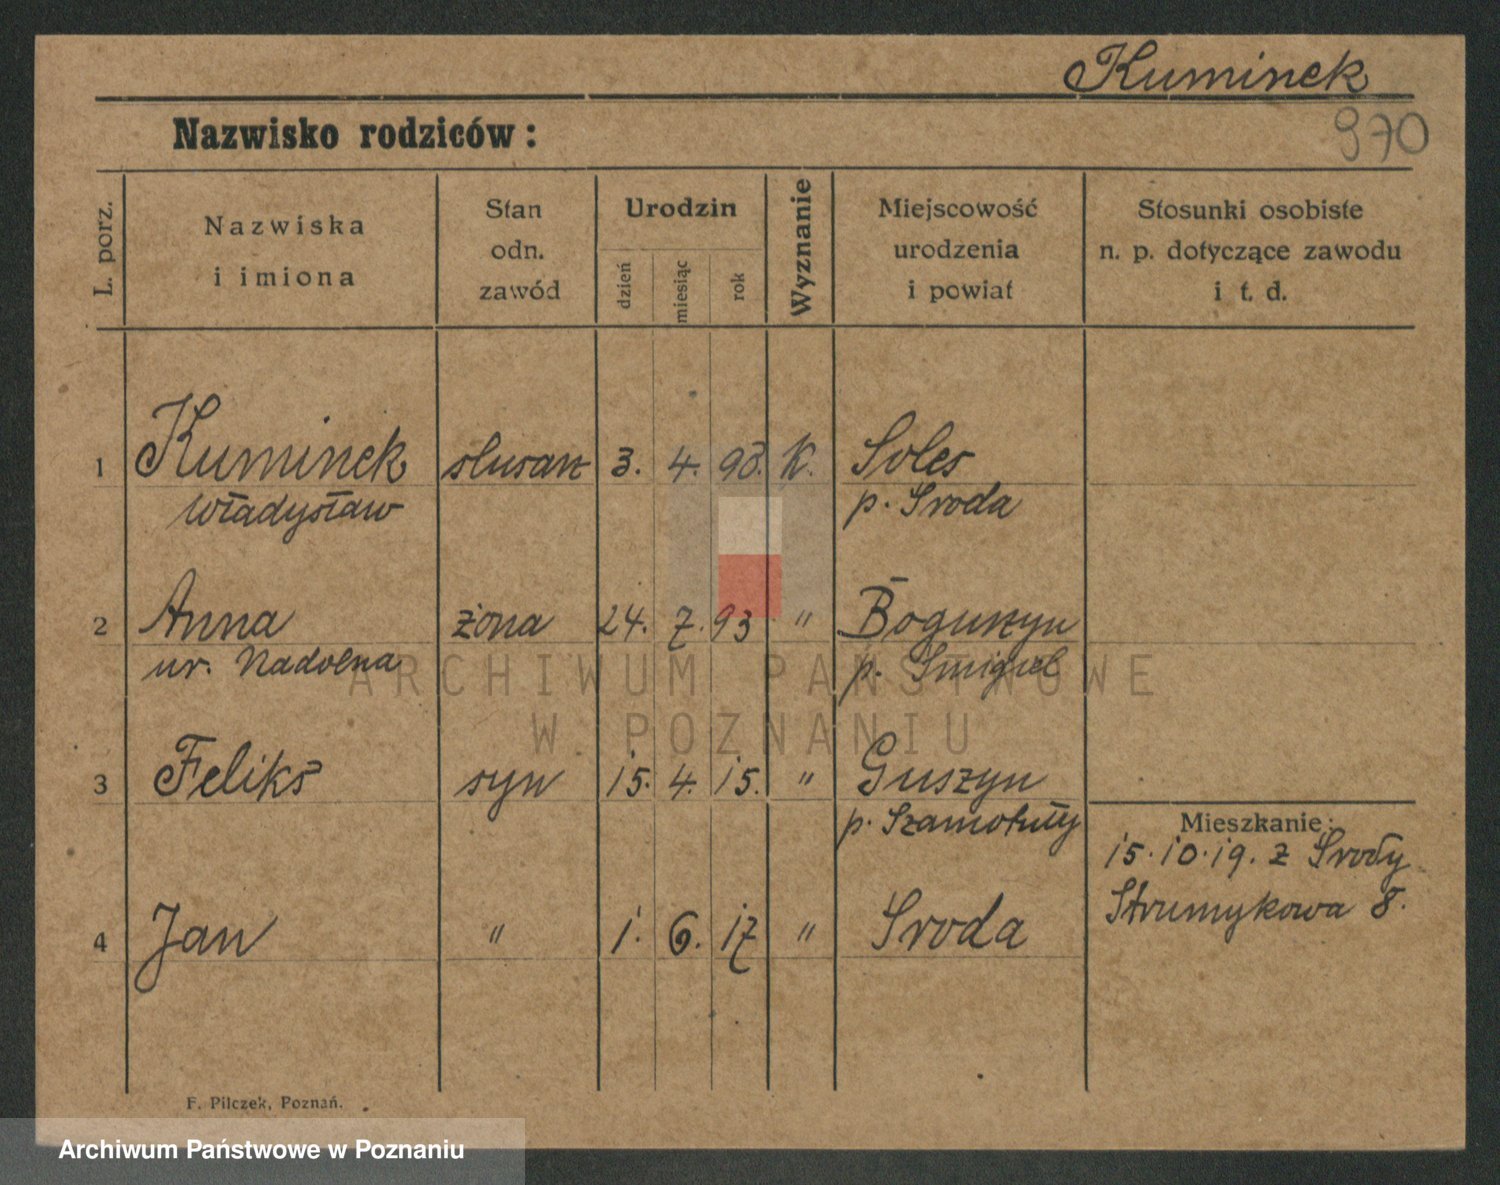 Kuminek
970
Nazwisko rodziców:
L. porz.
Nazwiska
i imiona
Stan
odn.
zawód
Urodzin
dzień
miesiąc
rok
Wyznanie
Miejscowość
urodzenia
i powiat
Stosunki osobiste
n. p. dotyczące zawodu
i t. d.
1 Kuminek ślusarz 3. 4. 93. K. Soles
Władysław p. Sroda
2 Anna żona 24. 7. 93 " Boguszyn
ur. Nadolna p. Smigiel
3 Feliks syn 15. 4. 15. " Guszyn
p. Szamotuły
Mieszkanie:
15.10.19. z Srody
Strumykowa 8.
4 Jan " 1. 6. 17 " Sroda
F. Pilczek, Poznań.
ARCHIWUM PAŃSTWOWE
W POZNANIU
Archiwum Państwowe w Poznaniu